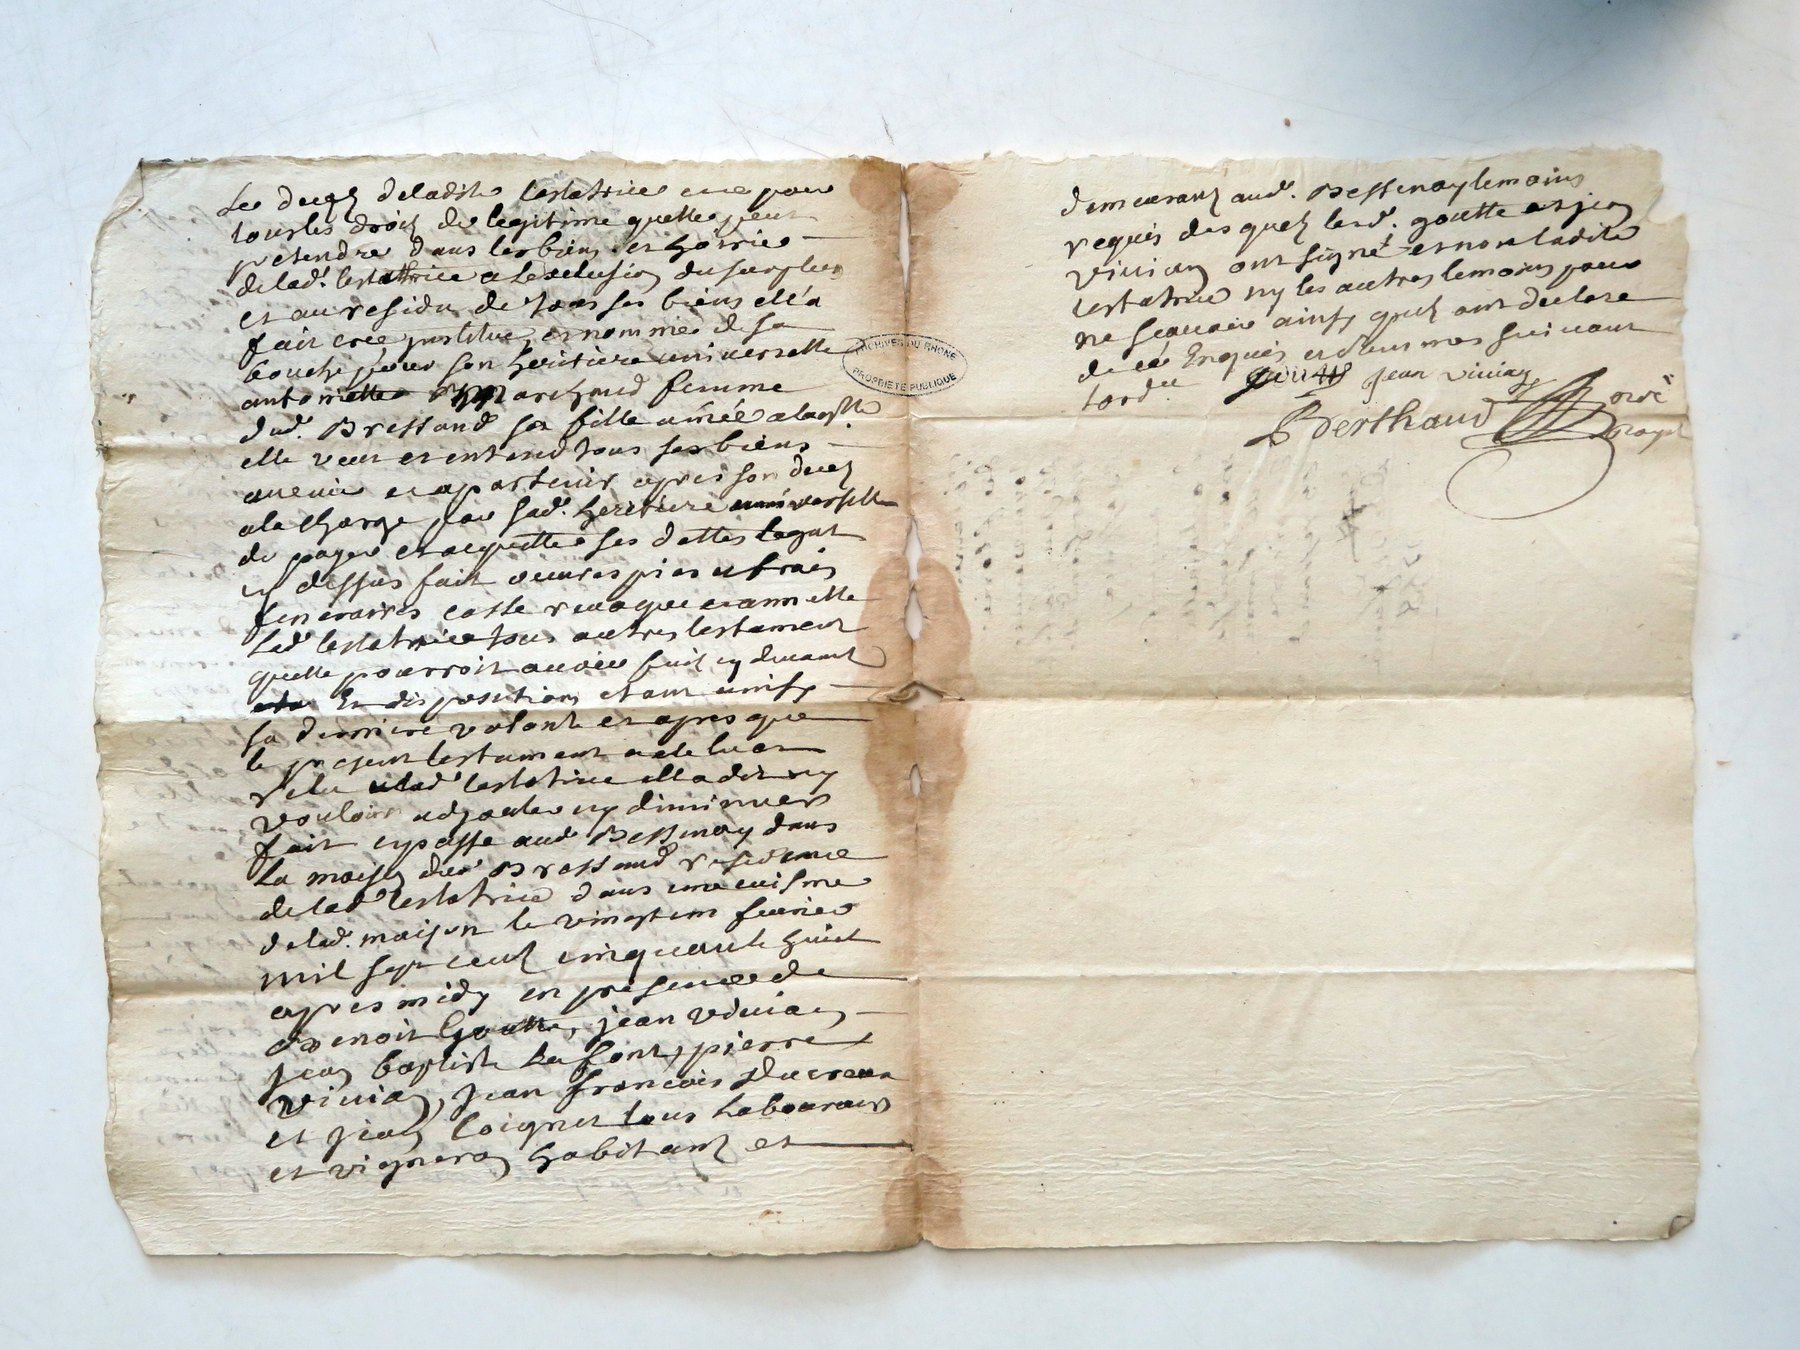 Le deces deladite testatrice ce pour
tous les droits de legitime quelle peut
pretendre dans les biens et hoirrie
delad. testatrice a lexclusion du surplus
et au residu de tous ses biens elle a
fait cree institué et nommée de sa
bouche pour son heritiere universelle
antoinette Marchand femme
dud. Bressand sa fille ainée a laqlle
elle veut et entend tous ses biens
avenir et apartenir apres son deces
ala charge par sad. heritiere universelle
de payer et acquitter ses dettes legat
cy dessus fait oeuvres pies et frais
funeraires casse revoque et annulle
lad. testatrice tous autres testament
quelle pourroit avoir fait cy devant
Et disposition etant ainsy
sa derniere volonté et apres que
le present testament a ete lu et
relu alad. testatrice ella dit ny
vouloir adjouter ny diminuer
fait et passé aud. Bessenay dans
la maison dud. Bressand residence
delad. testatrice dans une cuisine
delad. maison le vingt un fevrier
mil sept cent cinquante huict
apres midy en presence de
Benoit Goutte, jean vivian
jean baptiste Lafont, pierre
vivian, jean francois Ducreux
et jean Coignet tous laboureurs
et vigneron habitant et
ARCHIVES DU RHONE
PROPRIÉTÉ PUBLIQUE
demeurant aud. Bessenay temoins
requis desquels lesd. goutte et jean
vivian ont signé et non ladite
testatrice ny les autres temoins pour
ne scavoir ainsy quils ont declare
de ce Enquis et sommes suivant
lord.ce goutte jean vivian
Berthaud noré
royal